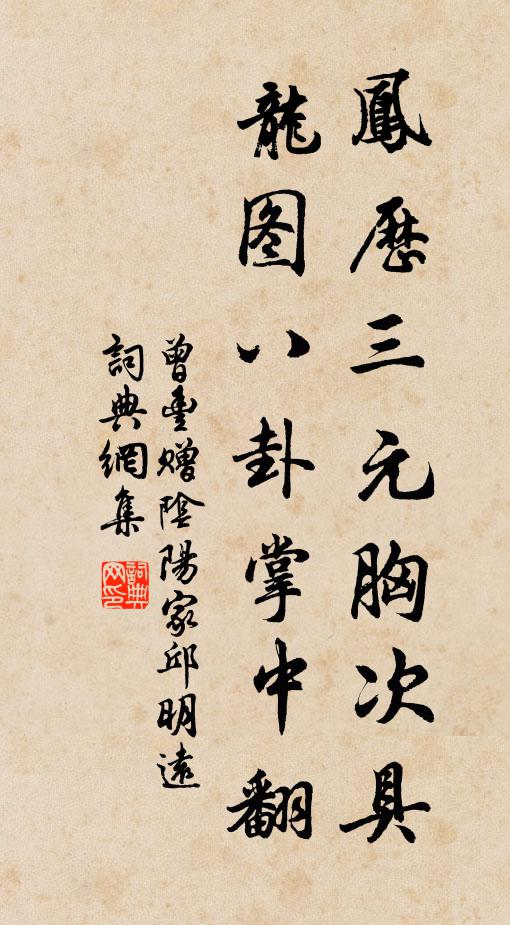 鳳歷三元胸次具
龍图八卦掌中翻
曾豊贈陰陽家邱明遠
詞典網集
詞典网印